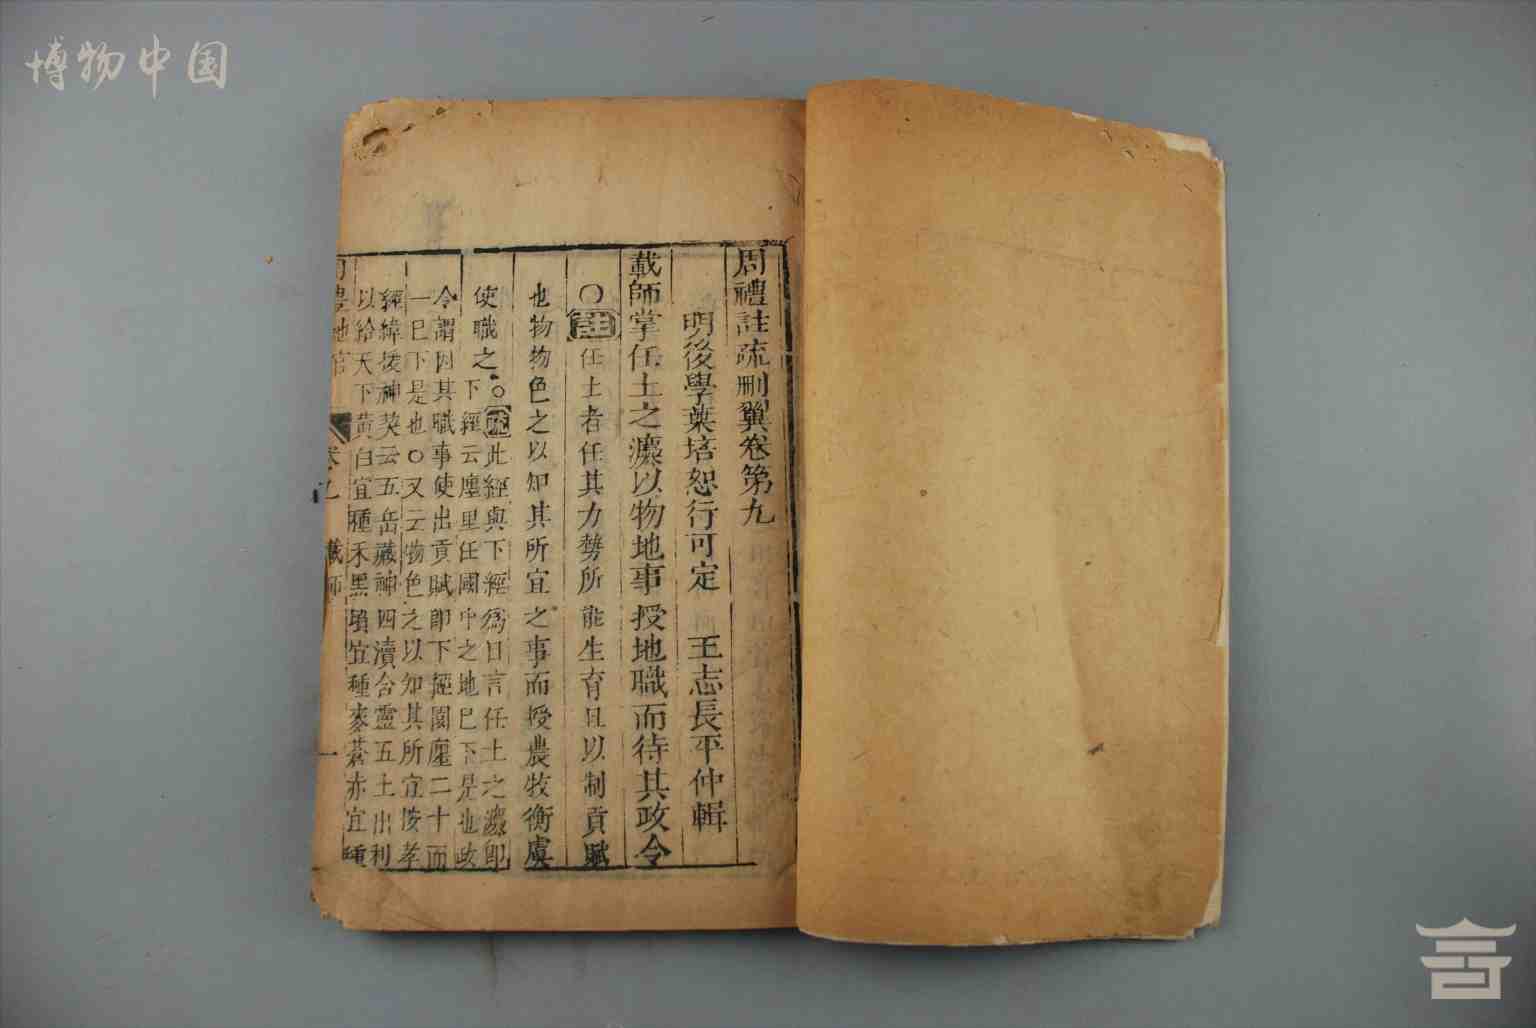 博物中国
周禮註疏刪翼卷第九
明後學葉培恕行可定 王志長平仲輯
載師掌任土之灋以物地事授地職而待其政令
○註任土者任其力勢所能生育且以制貢賦
也物物色之以知其所宜之事而授農牧衡虞
使職之○疏此經與下經爲目言任土之灋即
下經云廛里任國中之地巳下是也政
令謂因其職事使出貢賦即下經園廛二十而
一巳下是也○又云物色之以知其所宜按孝
經緯援神契云五岳藏神四瀆合靈五土出利
以給天下黃白宜種禾黑墳宜種麥蒼赤宜種
周禮地官 卷九 載師 一